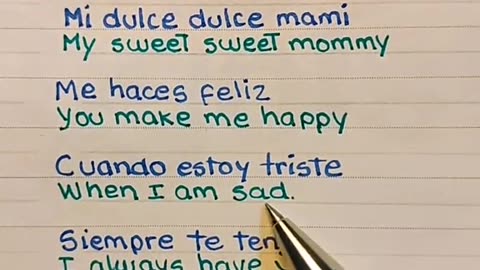 Mi dulce dulce mami
My sweet sweet mommy
Me haces feliz
You make me happy
Cuando estoy triste
When I am sad.
Siempre te
I always have